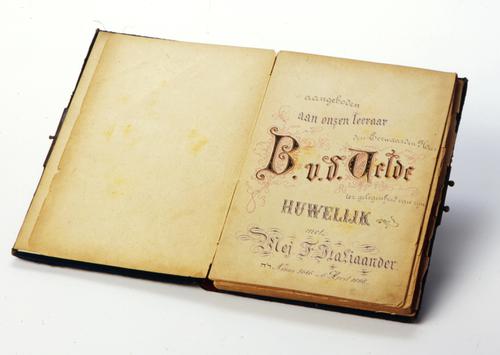 aangeboden
aan onzen leeraar
den Eerwaarden Heer
B. v.d. Velde
ter gelegenheid van zijn
HUWELIJK
met
Mej F. Italiaander